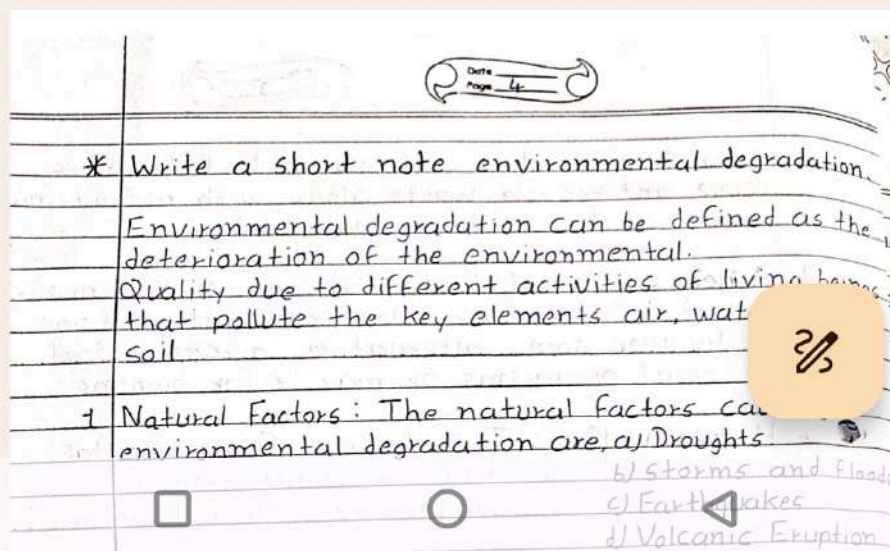 Date
Page 4
* Write a short note environmental degradation.
Environmental degradation can be defined as the
deterioration of the environmental.
Quality due to different activities of living beings
that pollute the key elements air,
soil
1 Natural Factors : The natural factors
environmental degradation are, a) Droughts
b) Storms and Floods
c) Earthquakes
d) Volcanic Eruption